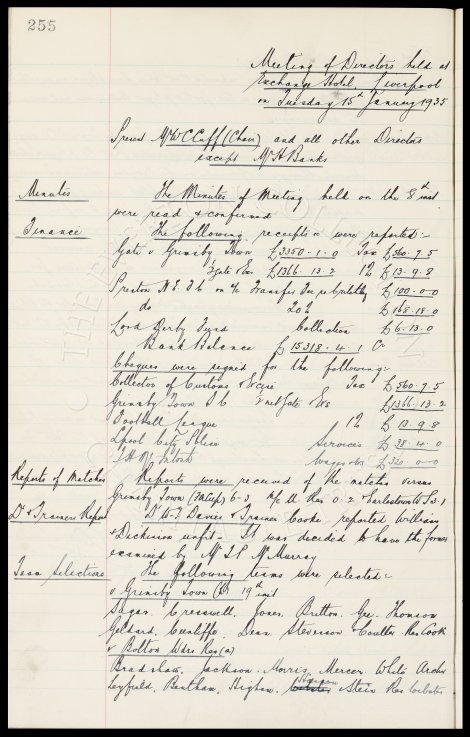 255
Meeting of Directors held at
Exchange Hotel, Liverpool
on Tuesday 15th January 1935
Present Mr W C Cuff (Chair) and all other Directors
except Mr H Banks
Minutes The Minutes of Meeting held on the 8th inst
were read & confirmed
Finance The following receipts were reported:-
Gate v Grimsby Town £3350-1-0 Tax £560-7-5
Gate £1366-13-2 1% £13-9-8
Preston N.E. F C on a/c Transfer Fee £100-0-0
do 20% £168-18-0
Lord Derby Fund Collection £6-13-0
Bank Balance £15318-4-1 Cr
Cheques were signed for the following:
Collector of Customs & Excise Tax £560-7-5
Grimsby Town F C £1366-13-2
Football League 1% £13-9-8
Lpool City Police Services £38-4-0
Wages £320-0-0
Reports of Matches Reports were received of the matches versus
Grimsby Town (FA Cup) 6-3, M/c U Res 0-2
Dr & Trainers Report Dr W.T. Davies & Trainer Cooke, reported Williams
& Dickinson unfit - It was decided to have the former
examined by Mr McMurray
Team Selections The following teams were selected:-
v Grimsby Town 19th inst
Sagar. Cresswell. Jones. Britton. Gee. Thomson
Geldard. Cunliffe. Dean. Stevenson & Coulter Res Cook
v Bolton Wdrs Res (a)
Bradshaw. Jackson. Morris. Mercer. White Archer
Leyfield. Bentham. Higham. Stein Res Webster